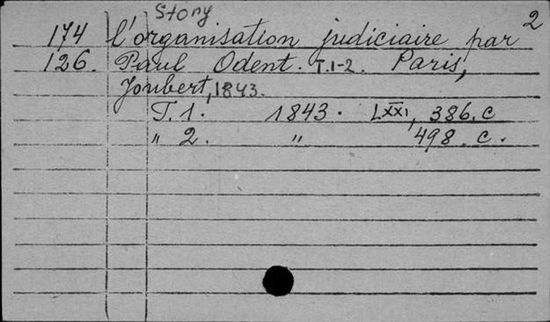 Story 2
174 l'organisation judiciaire par
126. Paul Odent. T.1-2. Paris,
Joubert, 1843.
T. 1. 1843. LXXI, 386. c
" 2. " 498. c.